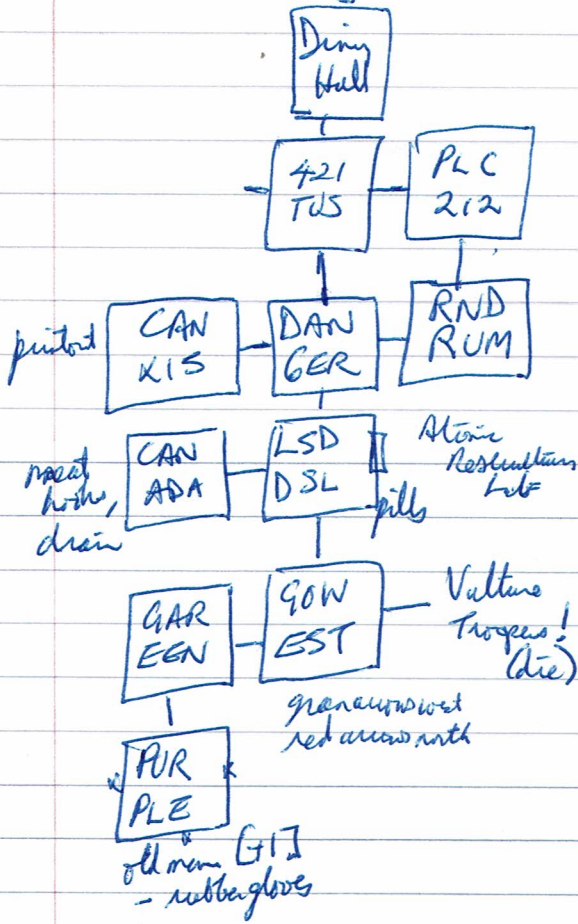 Dining
Hall
421
TUS
PLC
212
printout
CAN
KIS
DAN
GER
RND
RUM
meat
hooks,
drain
CAN
ADA
LSD
DSL
pills
Atomic
Lab
GAR
EEN
GOW
EST
Vulture
Troopers!
(die)
green arrows west
red arrows north
PUR
PLE
old man [+1]
- rubber gloves